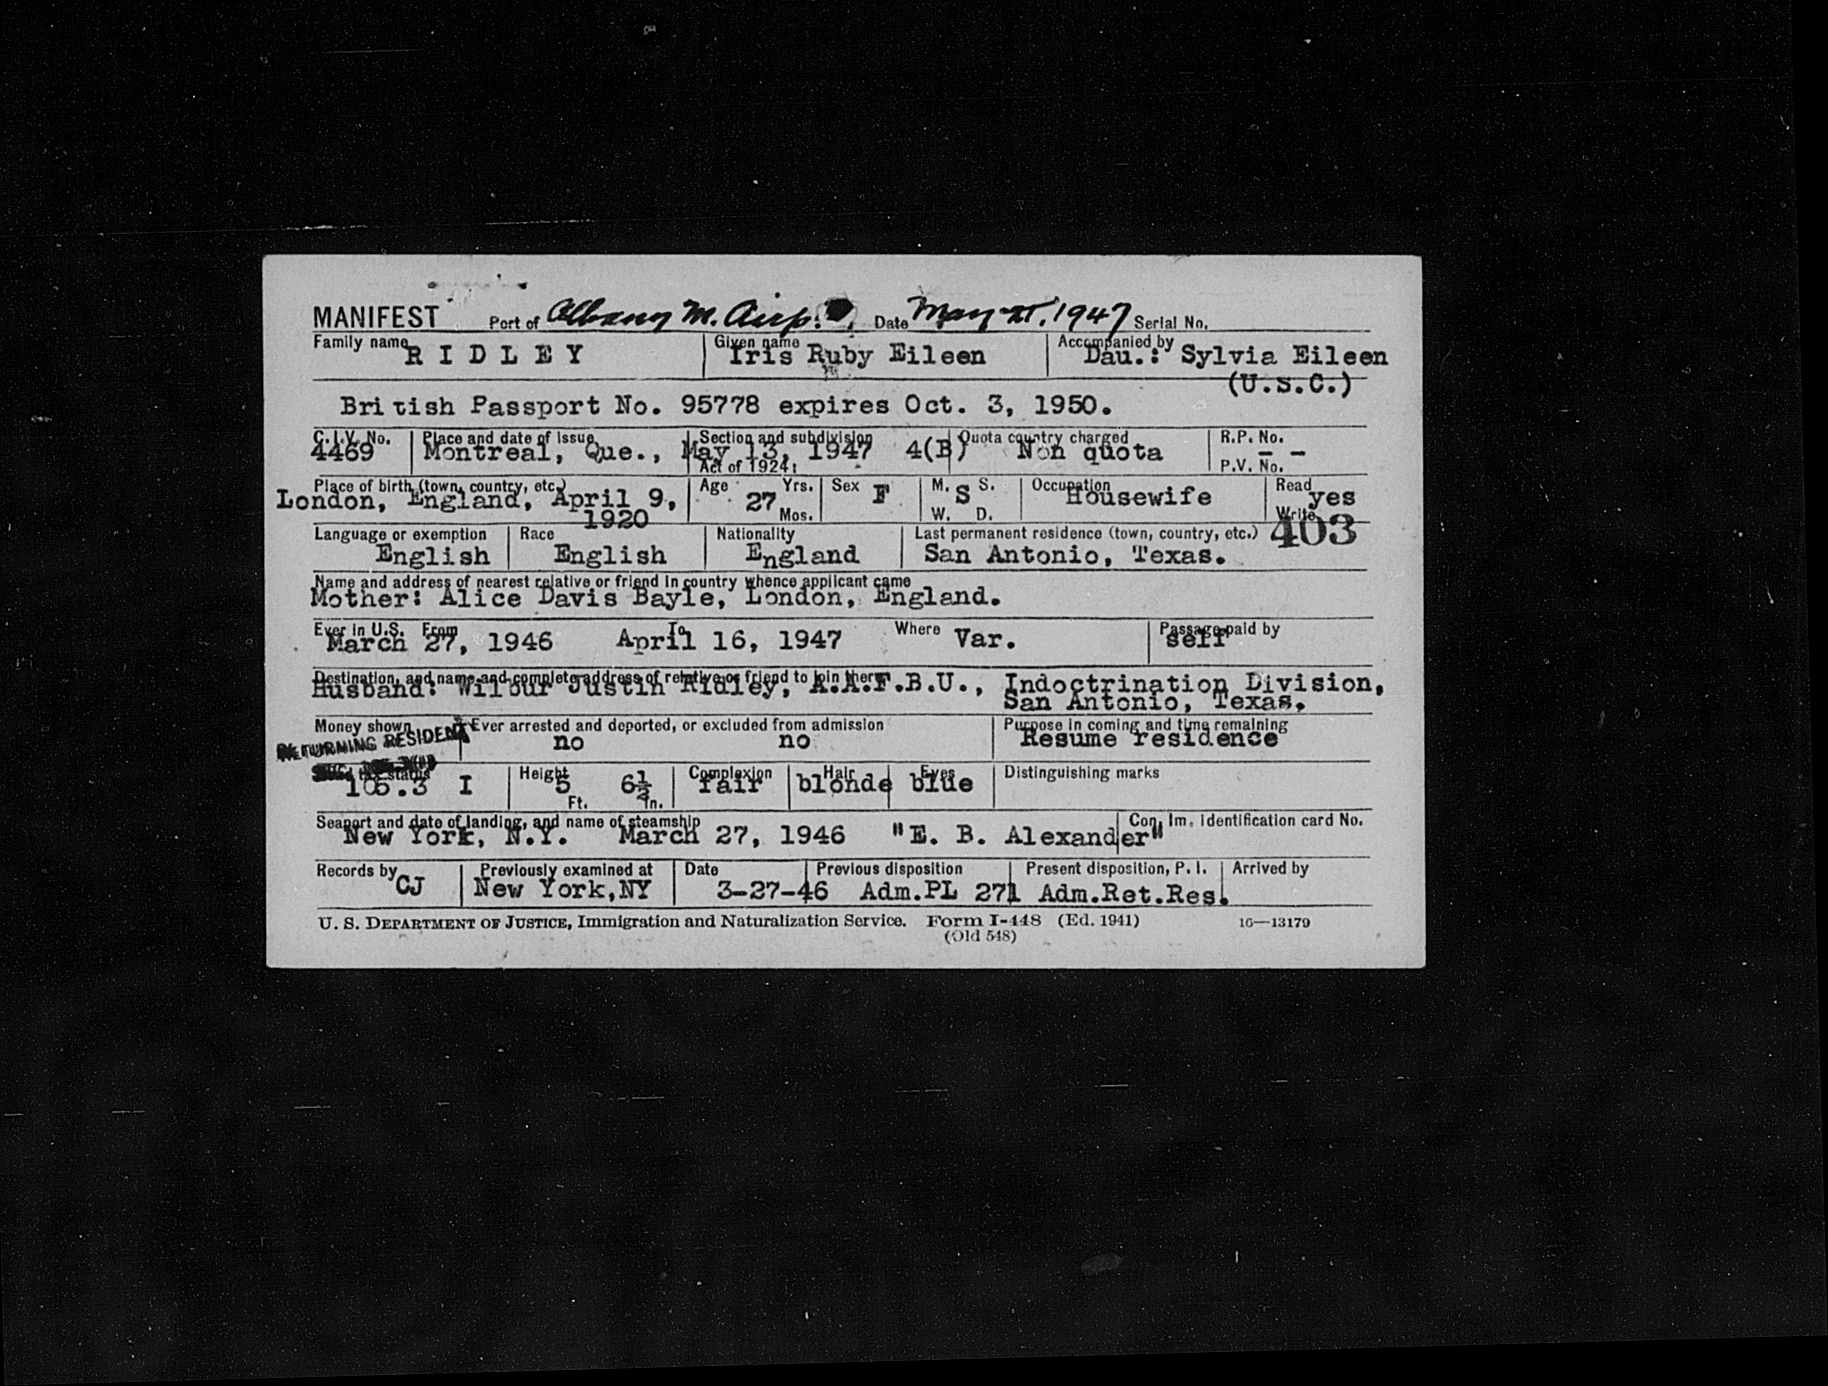 MANIFEST Port of Albany M. Airp. Date May 1947 Serial No.
Family name RIDLEY Given name Iris Ruby Eileen Accompanied by Dau.: Sylvia Eileen
(U.S.C.)
British Passport No. 95778 expires Oct. 3, 1950.
C.I.V. No. Place and date of issue Section and subdivision Quota country charged R.P. No.
4469 Montreal, Que., May 13, 1947 4(B) Non quota - -
Act of 1924: P.V. No.
Place of birth (town, country, etc.) Age Yrs. Sex F M. S. Occupation Read
London, England, April 9, 27 S Housewife yes
1920 Mos. W. D. Write
403
Language or exemption Race Nationality Last permanent residence (town, country, etc.)
English English England San Antonio, Texas.
Name and address of nearest relative or friend in country whence applicant came
Mother: Alice Davis Bayle, London, England.
Ever in U.S. From To Where Var. Passage paid by
March 27, 1946 April 16, 1947 self
Destination, and name and complete address of relative or friend to join there
Husband: Wilbur Justin Ridley, A.A.F.B.U., Indoctrination Division,
San Antonio, Texas.
Money shown Ever arrested and deported, or excluded from admission Purpose in coming and time remaining
RETURNING RESIDENT no no Resume residence
Head tax status Height Complexion Hair Eyes Distinguishing marks
105.3 I 5 6½ fair blonde blue
Ft. In.
Seaport and date of landing, and name of steamship Con. Im. Identification card No.
New York, N.Y. March 27, 1946 "E. B. Alexander"
Records by Previously examined at Date Previous disposition Present disposition, P. I. Arrived by
CJ New York,NY 3-27-46 Adm.PL 271 Adm.Ret.Res.
U. S. DEPARTMENT OF JUSTICE, Immigration and Naturalization Service. Form I-448 (Ed. 1941) 16—13179
(Old 548)